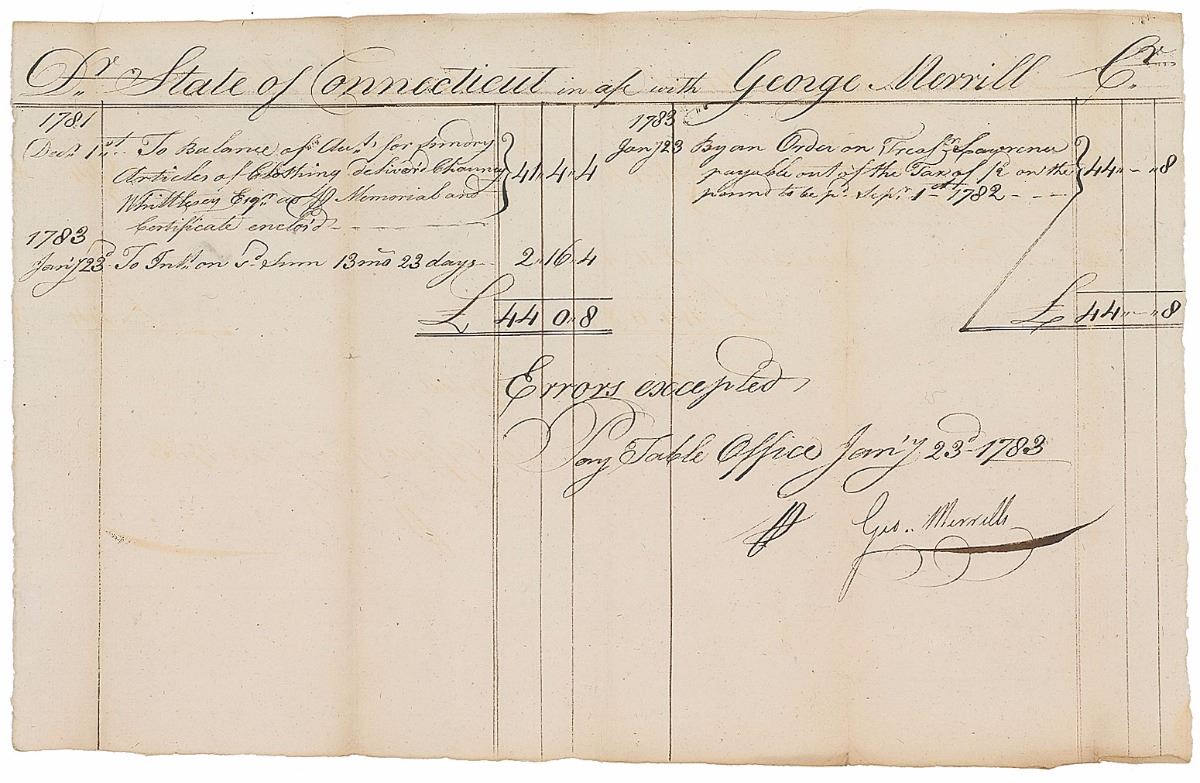 Dr State of Connecticut in a/c with George Merrill Cr
1781
Decr 1st To Balance of Acct for sundry
Articles of Clothing deliverd Chauncy
Whittlesey Esqr as Memorial and
Certificate enclos'd
41 4 4
1783
Jany 23d To Int on sd sum 13 mo 23 days 2 16 4
£ 44 0 8
1783
Jany 23 By an Order on Treasr Lawrence
payable out of the Tax of on the
pound to be pd Sepr 1st 1782
44 - 8
£ 44 - 8
Errors excepted
Pay Table Office Jany 23d 1783
Geo. Merrills